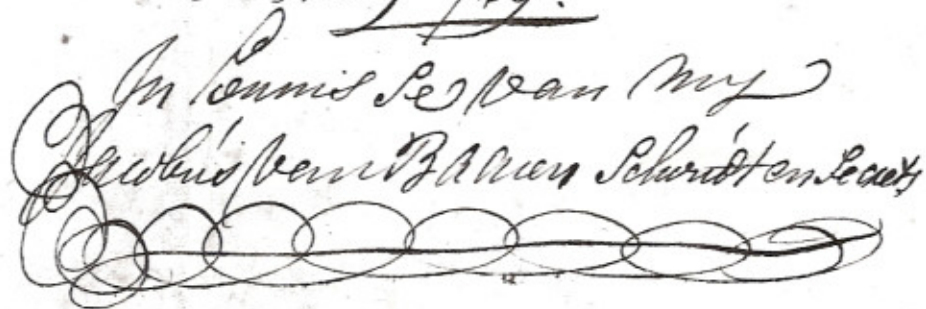 In kennis se van my
Jacobus van Baaren Schuidt en Secrets